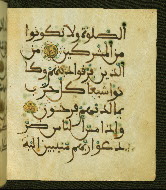 الصلوة ولا تكونوا
من المشركين من
الذين فرقوا دينهم وكا
نوا شيعا كل حزب
بما لديهم فرحون
واذا مس الناس ضر
دعوا ربهم منيبين اليه